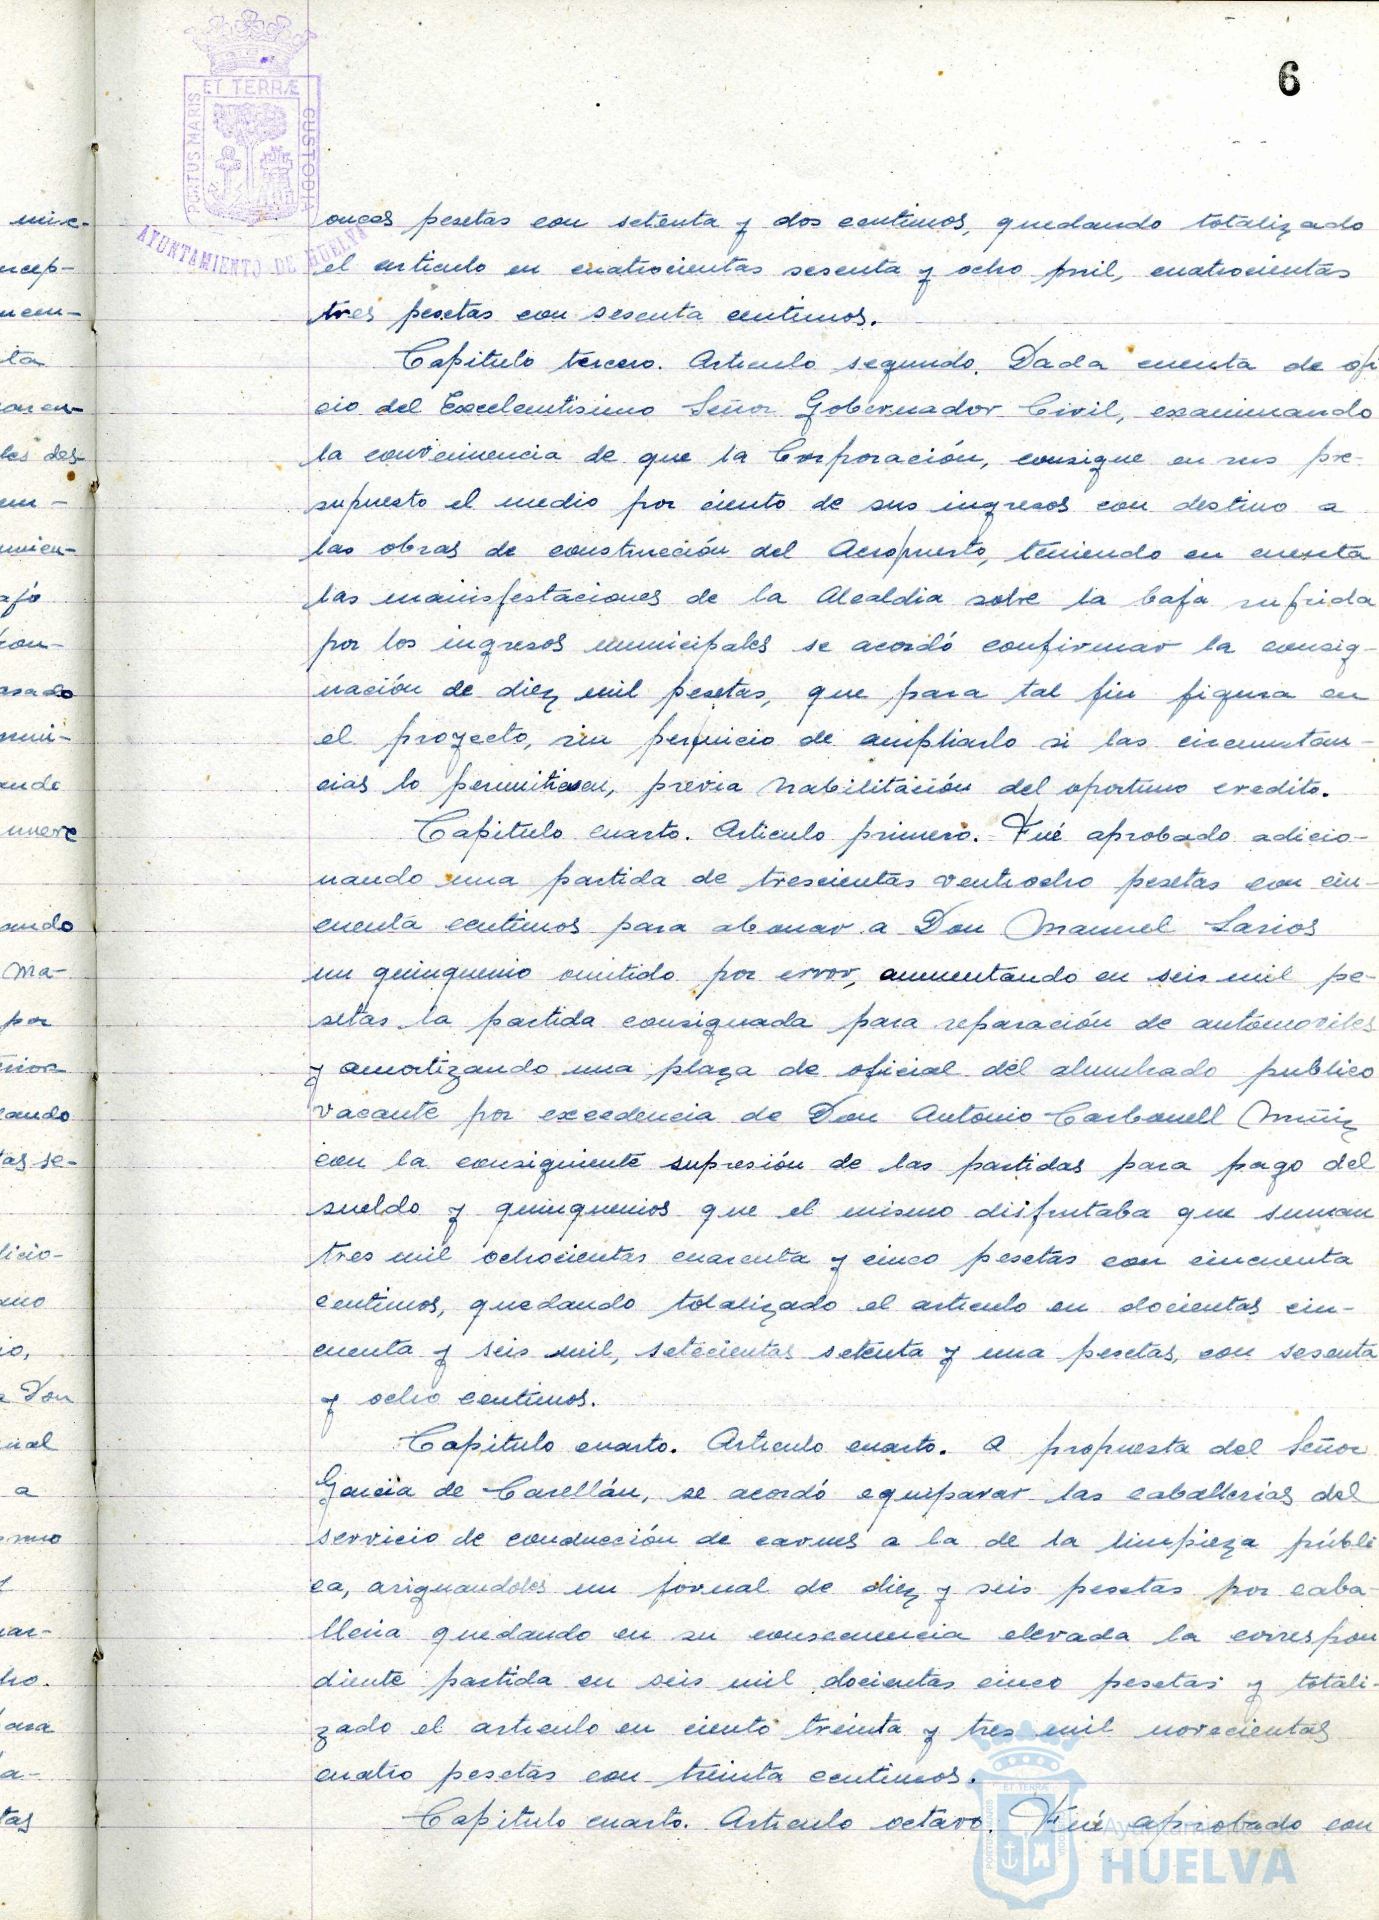 6
ET TERRÆ
PORTUS MARIS
CUSTODIA
AYUNTAMIENTO DE HUELVA
onces pesetas con setenta y dos centimos, quedando totalizado
el articulo en cuatrocientas sesenta y ocho mil, cuatrocientas
tres pesetas con sesenta centimos.
Capitulo tercero. Articulo segundo. Dada cuenta de ofi
cio del Excelentisimo Señor Gobernador Civil, examinando
la conveniencia de que la Corporación, consigne en sus pre-
supuesto el medio por ciento de sus ingresos con destino a
las obras de construcción del Aeropuerto, teniendo en cuenta
las manisfestaciones de la Alcaldia sobre la baja sufrida
por los ingresos municipales se acordó confirmar la consig-
nación de diez mil pesetas, que para tal fin figura en
el proyecto, sin perjuicio de ampliarlo si las circunstan-
cias lo permitiesen, previa habilitación del oportuno credito.
Capitulo cuarto. Articulo primero. Fué aprobado adicio-
nando una partida de trescientas ventiocho pesetas con cin-
cuenta centimos para abonar a Don Manuel Larios
un quinquenio omitido por error, aumentando en seis mil pe-
setas la partida consignada para reparación de automoviles
y amortizando una plaza de oficial del alumbrado publico
vacante por excedencia de Don Antonio Carbonell Muñiz
con la consiguiente supresión de las partidas para pago del
sueldo y quinquenios que el mismo disfrutaba que suman
tres mil ochocientas cuarenta y cinco pesetas con cincuenta
centimos, quedando totalizado el articulo en docientas cin-
cuenta y seis mil, setecientas setenta y una pesetas, con sesenta
y ocho centimos.
Capitulo cuarto. Articulo cuarto. A propuesta del Señor
Garcia de Carellán, se acordó equiparar las caballerias del
servicio de conducción de carnes a la de la limpieza públi
ca, asignandoles un jornal de diez y seis pesetas por caba-
lleria quedando en su consecuencia elevada la correspon
diente partida en seis mil docientas cinco pesetas y totali-
zado el articulo en ciento treinta y tres mil novecientas
cuatro pesetas con treinta centimos.
Capitulo cuarto. Articulo octavo. Fué aprobado con
Ayuntamiento de
HUELVA